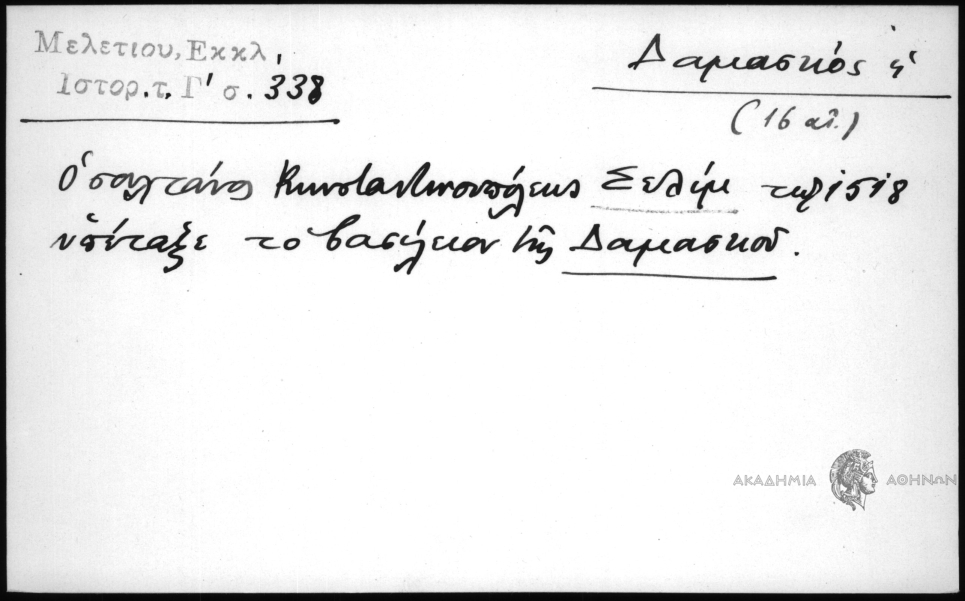 Μελετιου, Εκκλ,
Ιστορ.τ. Γ' σ. 338
Δαμασκός ἡ
(16 αἰ.)
Ὁ σουλτάνος Κωνσταντινουπόλεως Σελίμ τῷ 1518
ὑπέταξε τὸ βασίλειον τῆς Δαμασκοῦ.
ΑΚΑΔΗΜΙΑ ΑΘΗΝΩΝ